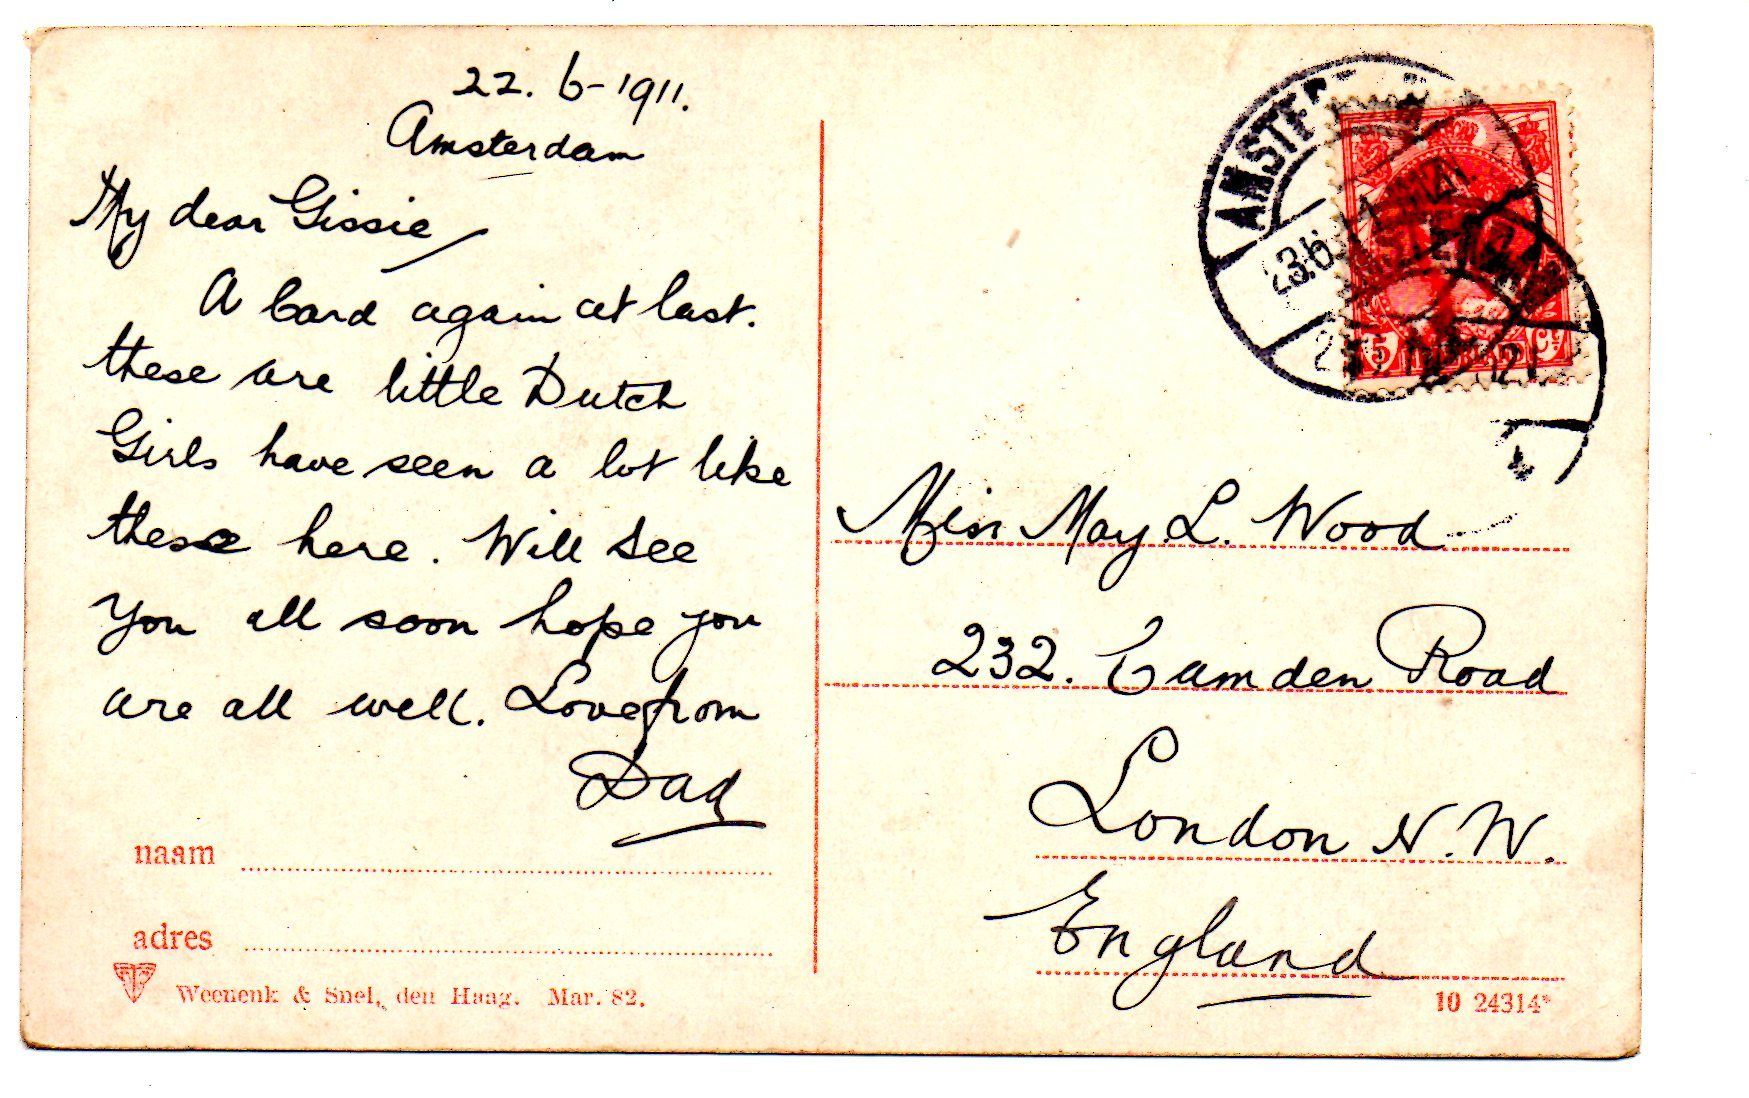 22. 6-1911.
Amsterdam
My dear Gissie
A Card again at last.
these are little Dutch
Girls have seen a lot like
these here. Will See
you all soon hope you
are all well. Love from
Dad
naam
adres
Weenenk & Snel, den Haag. Mar. 82.
Miss May L. Wood
232. Camden Road
London N.W.
England
10 24314*
AMSTERDAM
23.6
5 Ct